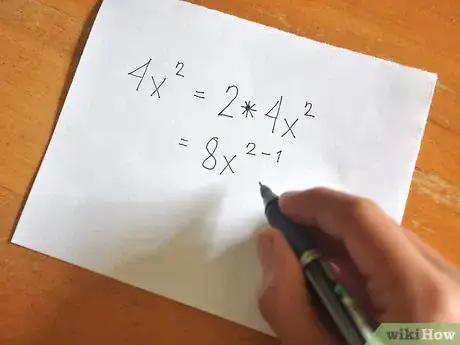 4x² = 2*4x²
= 8x²⁻¹
wikiHow